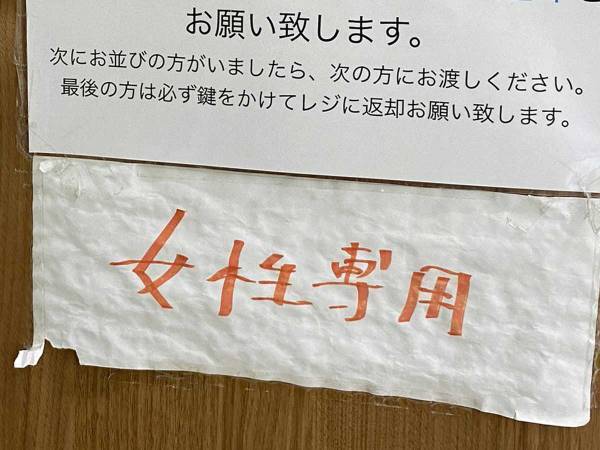 お願い致します。
次にお並びの方がいましたら、次の方にお渡しください。
最後の方は必ず鍵をかけてレジに返却お願い致します。
女性専用